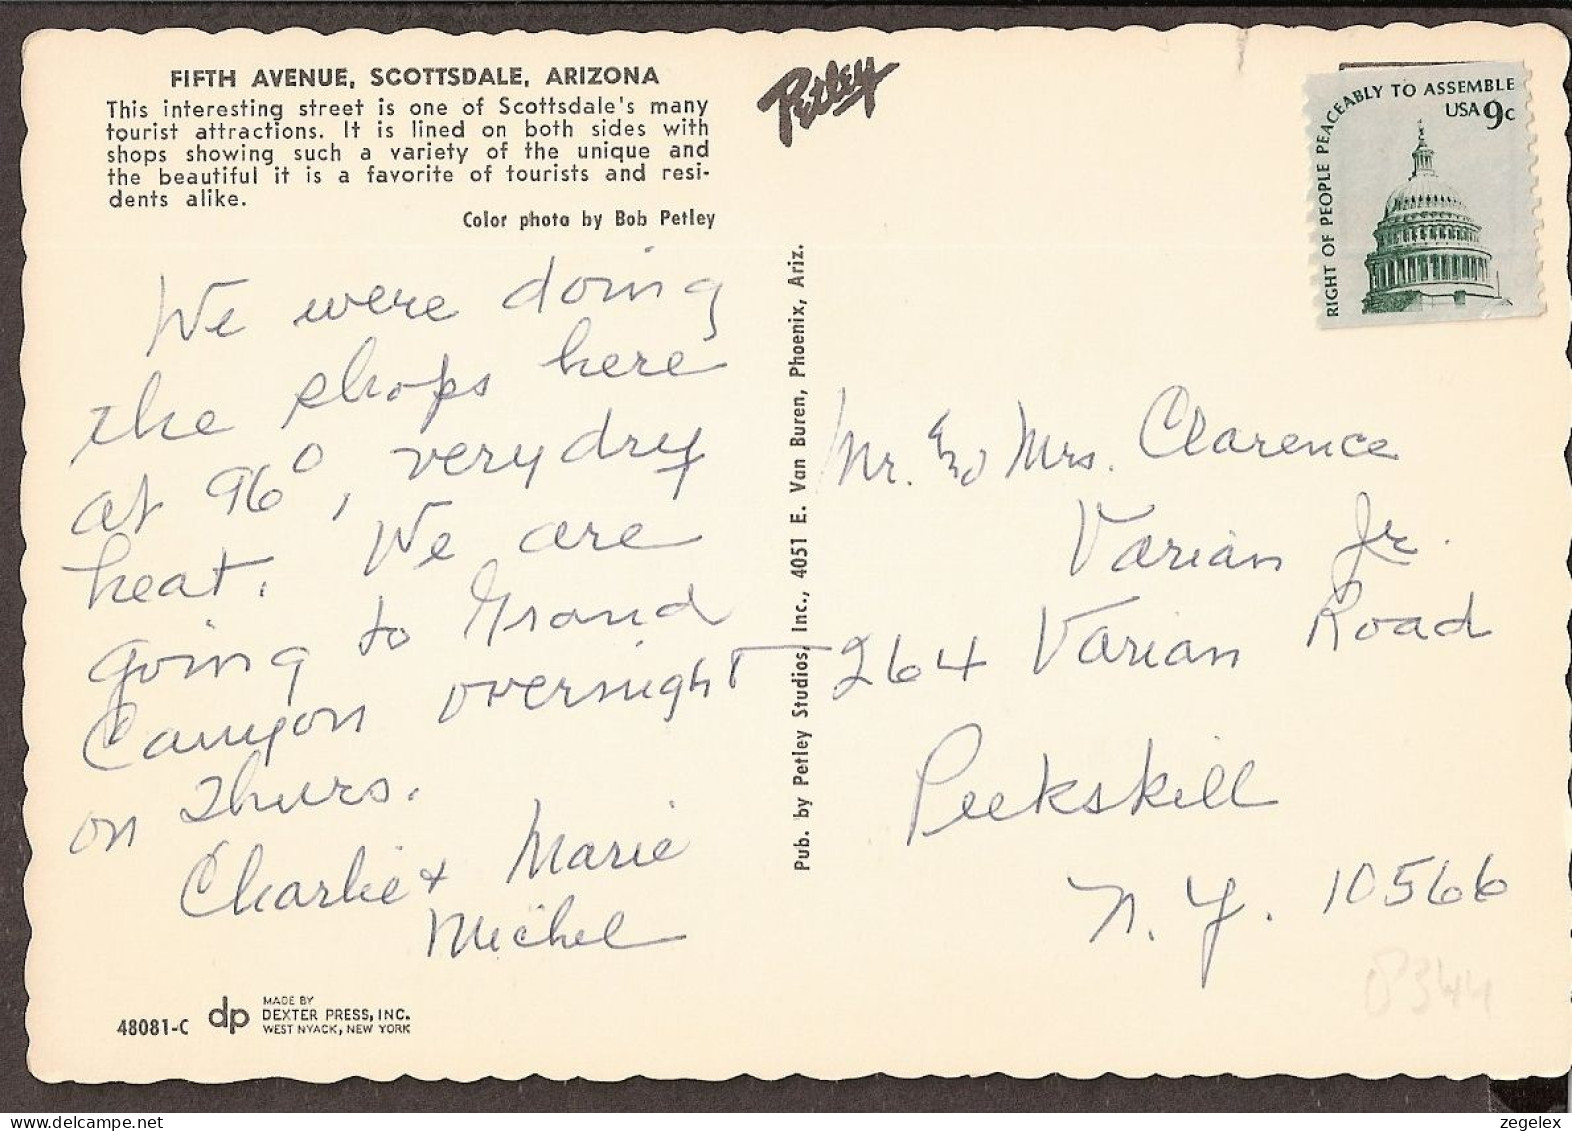 FIFTH AVENUE, SCOTTSDALE, ARIZONA
This interesting street is one of Scottsdale's many
tourist attractions. It is lined on both sides with
shops showing such a variety of the unique and
the beautiful it is a favorite of tourists and resi-
dents alike.
Color photo by Bob Petley
Petley
RIGHT OF PEOPLE PEACEABLY TO ASSEMBLE
USA 9c
We were doing
the shops here
at 96°, very dry
heat. We are
going to Grand
Canyon overnight
on Thurs.
Charlie + Marie
Michel
Pub. by Petley Studios, Inc., 4051 E. Van Buren, Phoenix, Ariz.
Mr. and Mrs. Clarence
Varian Jr.
264 Varian Road
Peekskill
N.Y. 10566
8344
48081-C
dp
MADE BY
DEXTER PRESS, INC.
WEST NYACK, NEW YORK
www.delcampe.net
zegelex